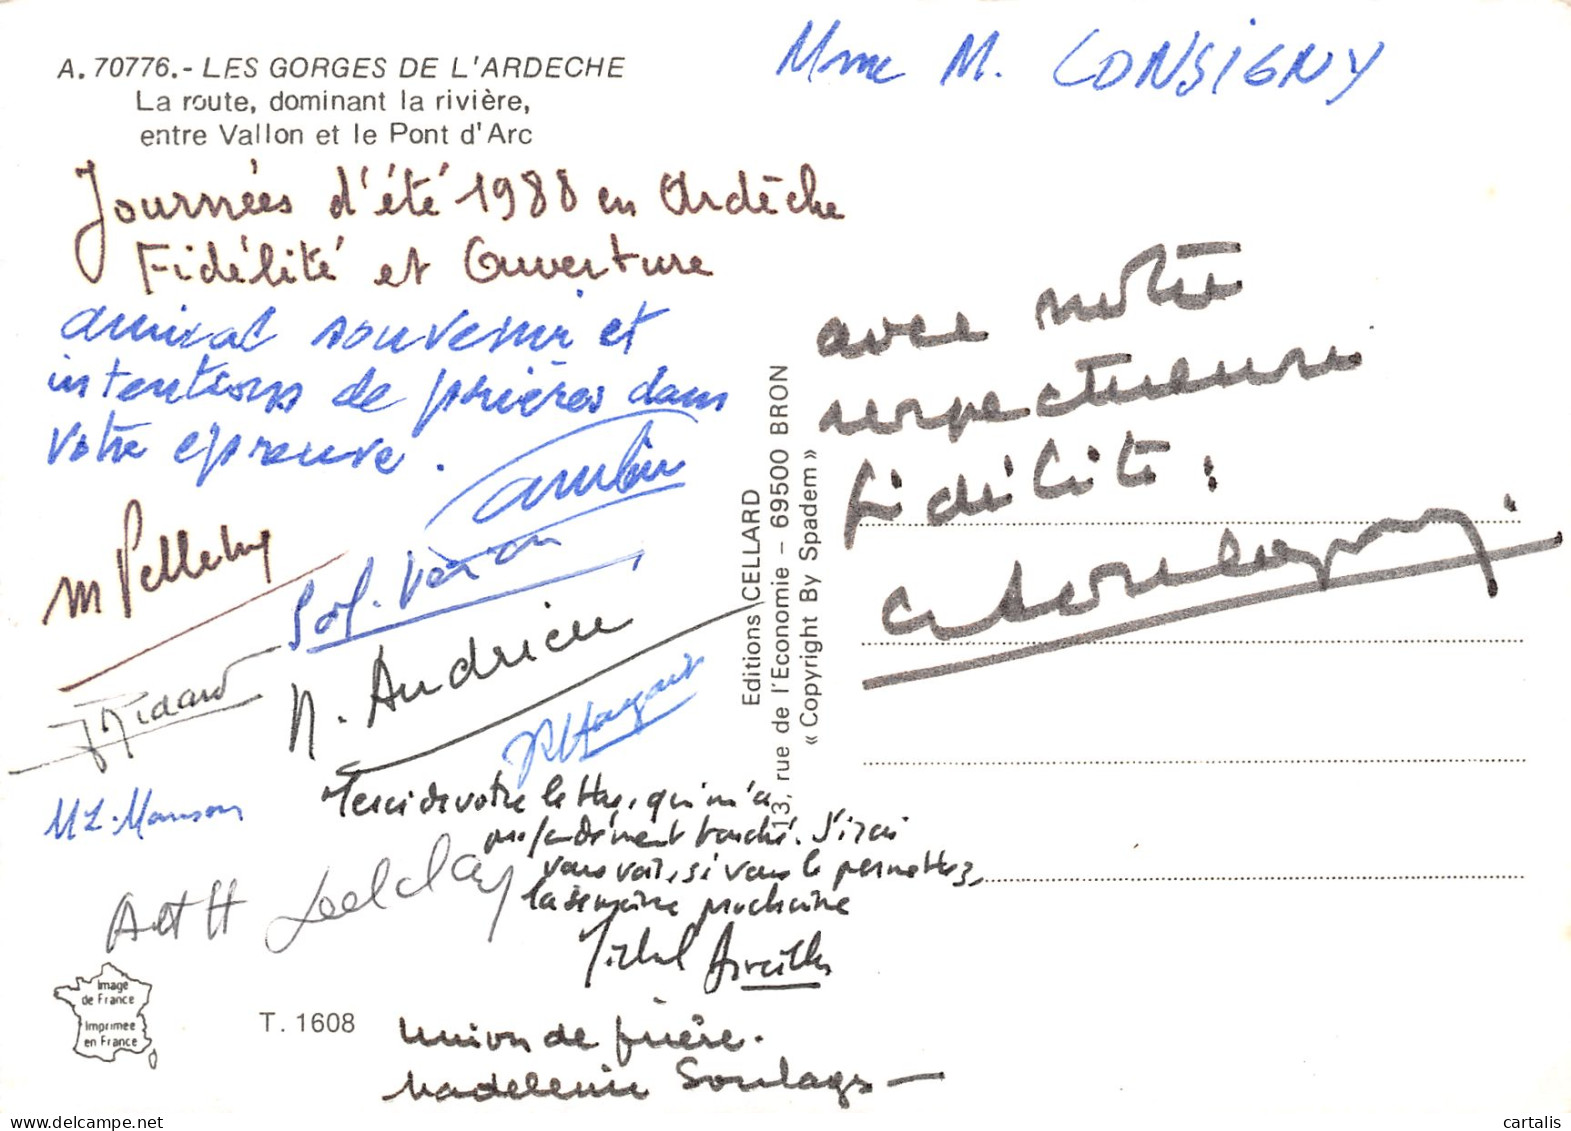 A. 70776.- LES GORGES DE L'ARDECHE
La route, dominant la rivière,
entre Vallon et le Pont d'Arc
Mme M. CONSIGNY
Journées d'été 1988 en Ardèche
Fidélité et Ouverture
amical souvenir et
intentions de prières dans
votre épreuve.
avec notre
respectueuse
fidélité.
M
N. Andrieu
M L. Manson
Merci de votre lettre, qui m'a
profondément touché. J'irai
vous voir, si vous le permettez,
la semaine prochaine
Michel
Union de prière.
Madeleine Soulages
Editions CELLARD
13, rue de l'Economie – 69500 BRON
« Copyright By Spadem »
Image
de France
Imprimée
en France
T. 1608
cartalis